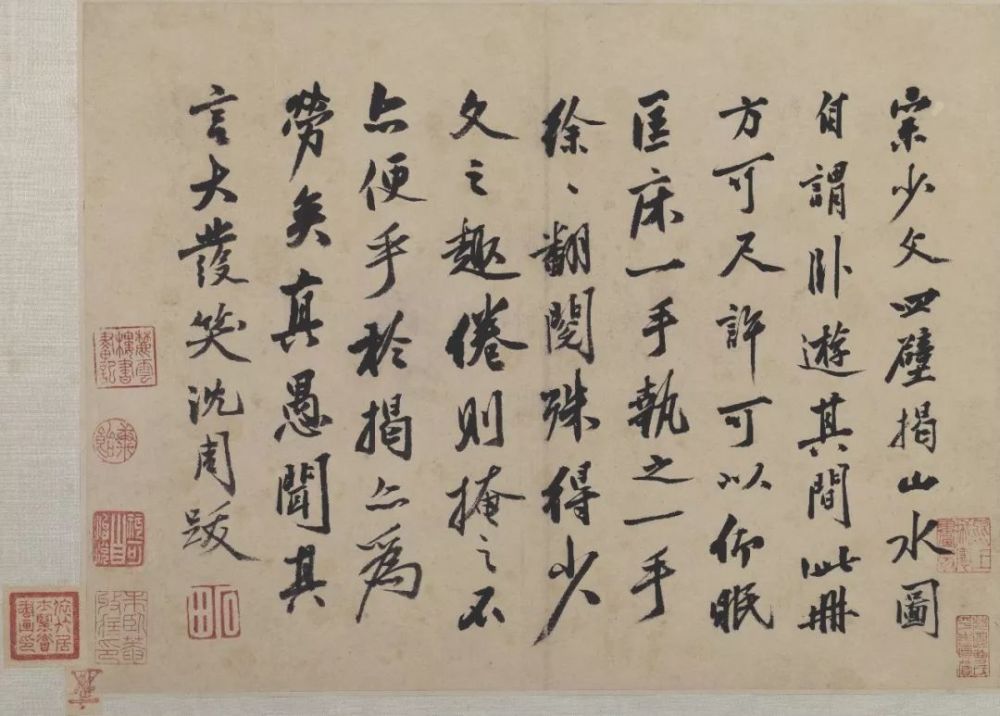 宗少文四壁揭山水圖
自謂卧遊其間此冊
方可尺許可以仰眠
匡床一手執之一手
徐〻翻閱殊得少
文之趣倦則掩之不
亦便乎於揭亦爲
勞矣真愚聞其
言大發笑沈周跋
石田
麓雲樓書畫記